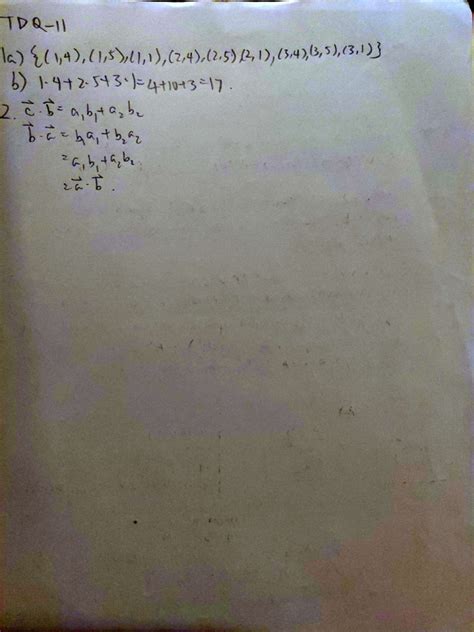 TDQ-11
1a) {(1,4),(1,5),(1,1),(2,4),(2,5),(2,1),(3,4),(3,5),(3,1)}
b) 1·4+2·5+3·1=4+10+3=17.
2. c⃗·b⃗=a₁b₁+a₂b₂
b⃗·a⃗=b₁a₁+b₂a₂
=a₁b₁+a₂b₂
=a⃗·b⃗.